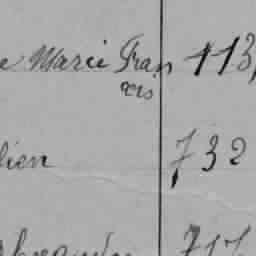 e Marie Fran 113
çois
lien 732
717